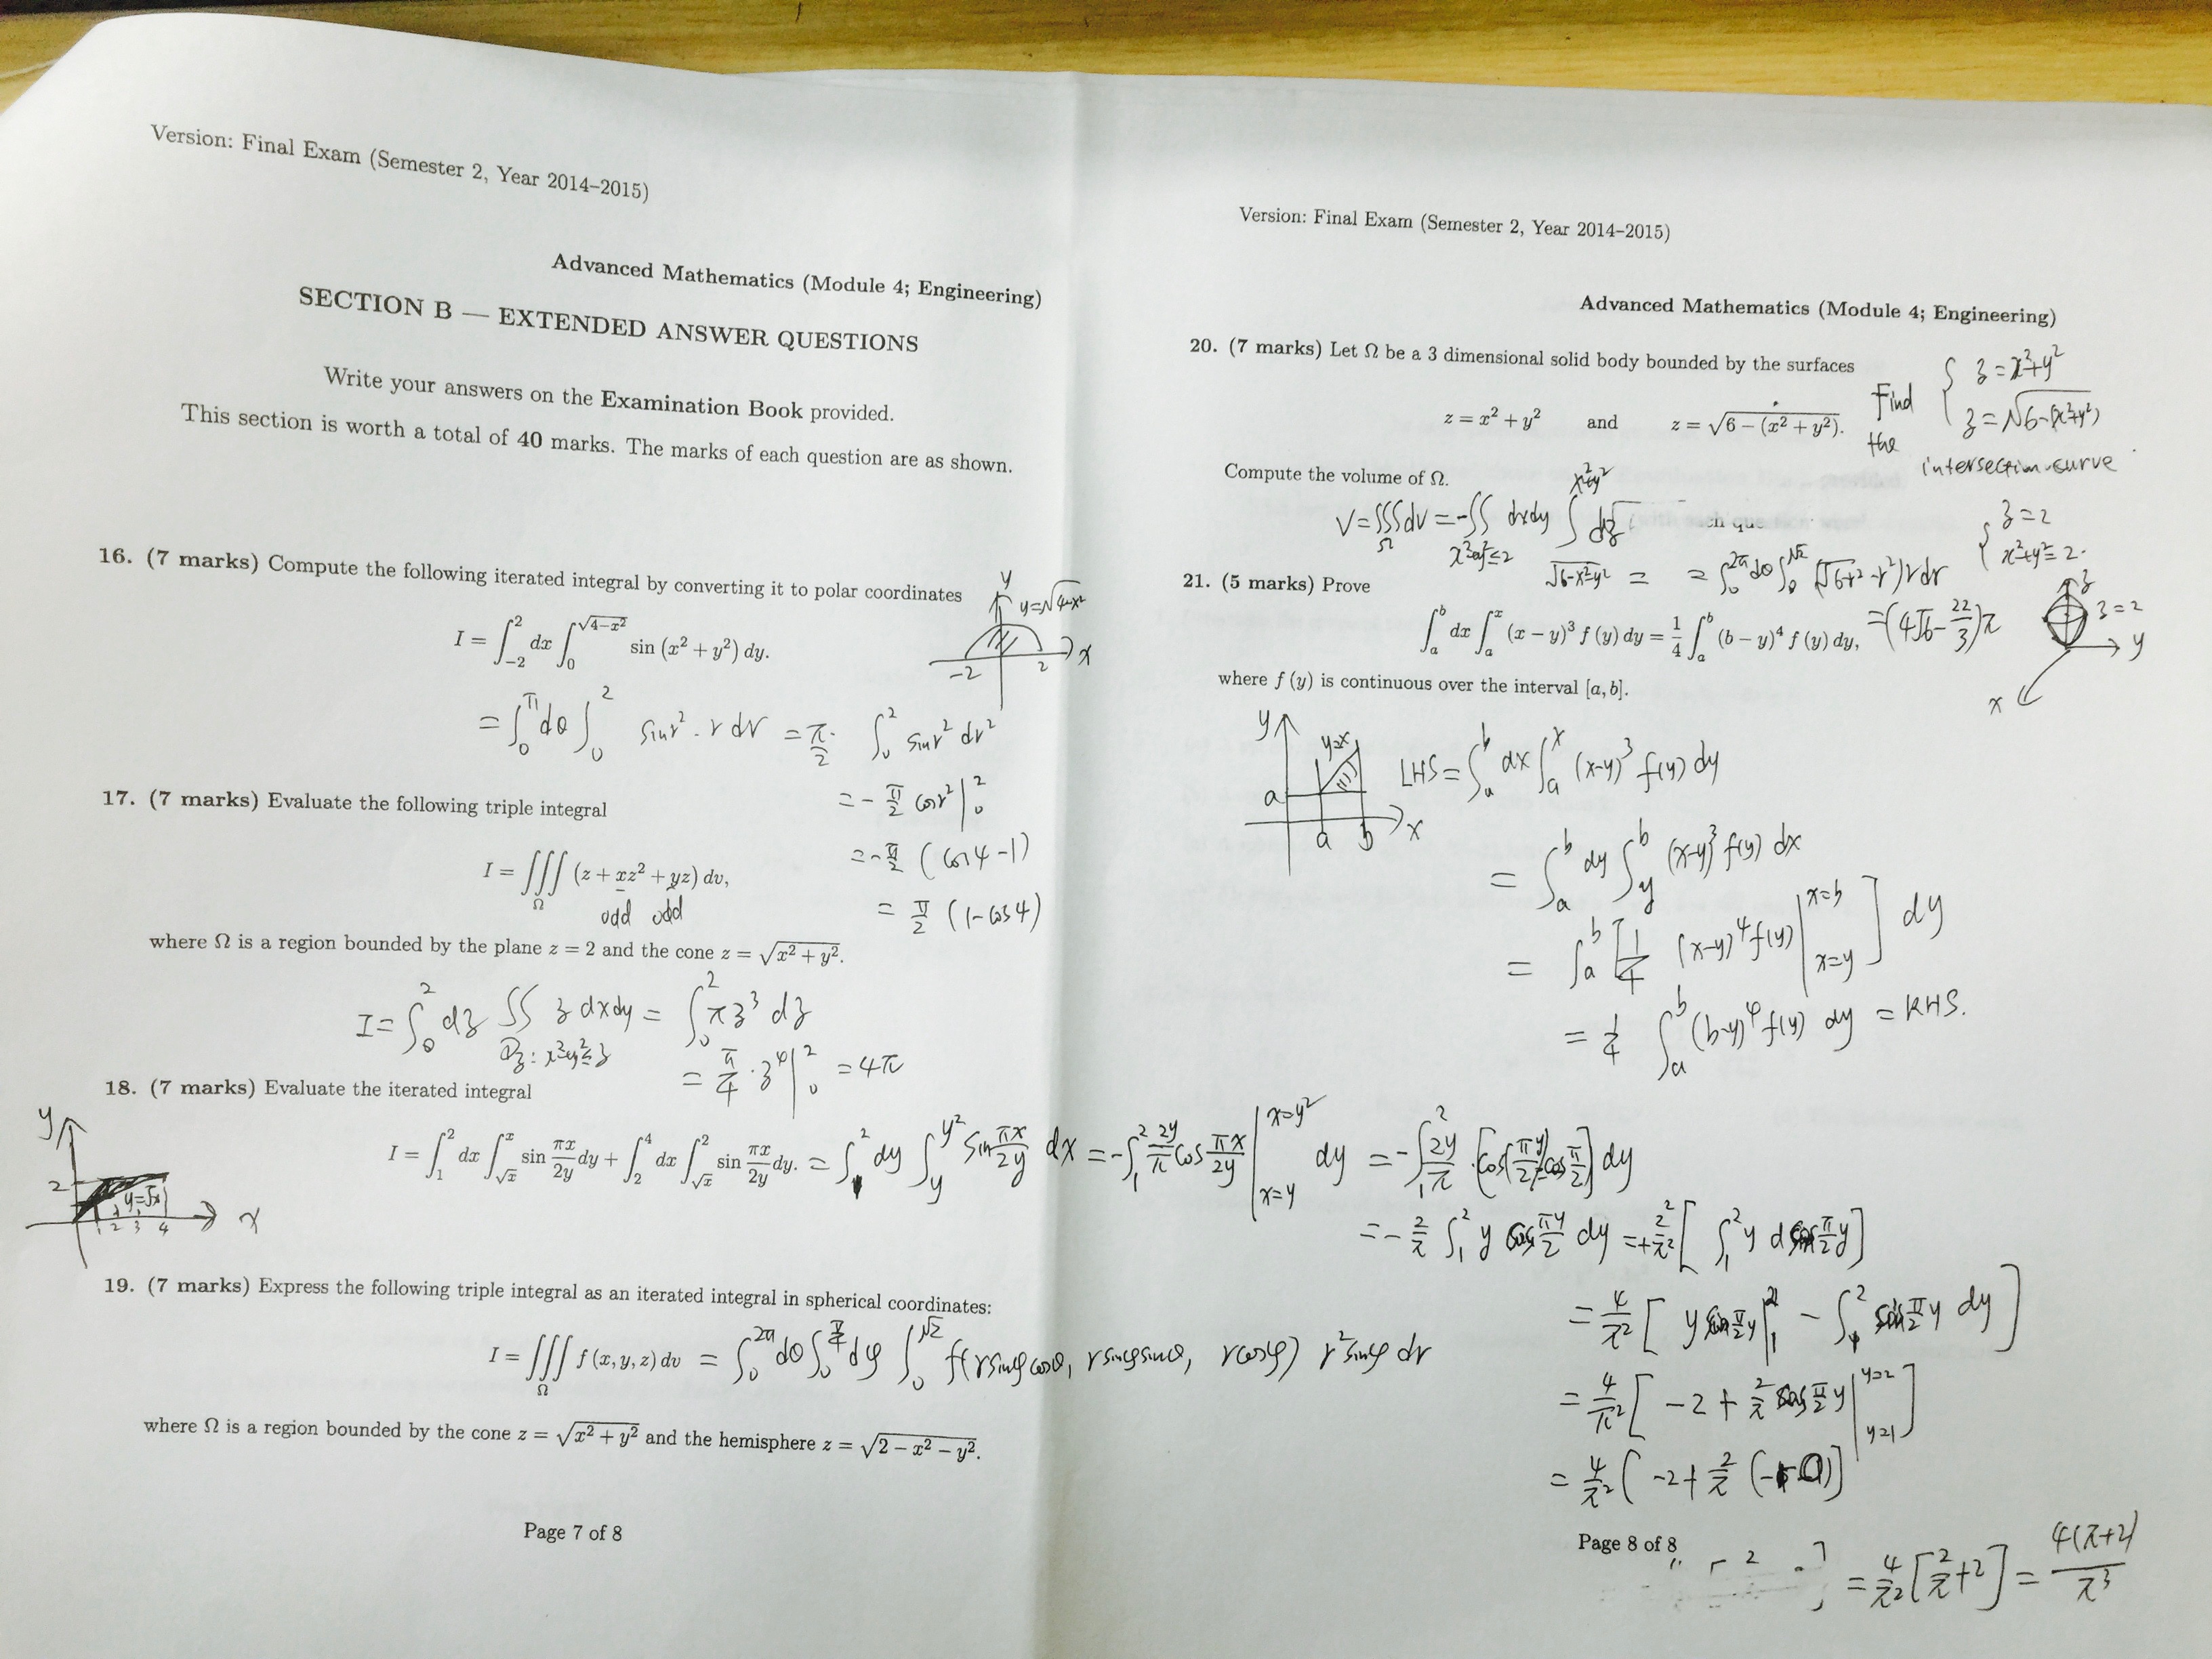 Version: Final Exam (Semester 2, Year 2014–2015)
Advanced Mathematics (Module 4; Engineering)
SECTION B — EXTENDED ANSWER QUESTIONS
Write your answers on the Examination Book provided.
This section is worth a total of 40 marks. The marks of each question are as shown.
16. (7 marks) Compute the following iterated integral by converting it to polar coordinates
I = ∫_{-2}^{2} dx ∫_0^{√(4−x²)} sin (x² + y²) dy.
y
y=√(4-x²)
-2 2 x
= ∫_0^π dθ ∫_0^2 sin r² · r dr = π/2 · ∫_0^2 sin r² dr²
= - π/2 cos r² |_0^2
= - π/2 (cos4-1)
= π/2 (1-cos4)
17. (7 marks) Evaluate the following triple integral
I = ∭_Ω (z + xz² + yz) dv,
odd odd
where Ω is a region bounded by the plane z = 2 and the cone z = √(x² + y²).
I = ∫_0^2 dz ∬ z dxdy = ∫_0^2 πz³ dz
= π/4 · z⁴ |_0^2 = 4π
18. (7 marks) Evaluate the iterated integral
I = ∫_1^2 dx ∫_{√x}^{x} sin πx/2y dy + ∫_2^4 dx ∫_{√x}^{2} sin πx/2y dy. = ∫_1^2 dy ∫_y^{y²} sin πx/2y dx = -∫_1^2 2y/π cos πx/2y |_{x=y}^{x=y²} dy = -∫_1^2 2y/π [cos(πy/2) - cos π/2] dy
y
2
y=√x
1 2 3 4 x
= - 2/π ∫_1^2 y cos πy/2 dy
19. (7 marks) Express the following triple integral as an iterated integral in spherical coordinates:
I = ∭_Ω f (x, y, z) dv = ∫_0^{2π} dθ ∫_0^{π/4} dφ ∫_0^{√2} f(r sinφ cosθ, r sinφ sinθ, r cosφ) r² sinφ dr
where Ω is a region bounded by the cone z = √(x² + y²) and the hemisphere z = √(2 − x² − y²).
Page 7 of 8
Version: Final Exam (Semester 2, Year 2014–2015)
Advanced Mathematics (Module 4; Engineering)
20. (7 marks) Let Ω be a 3 dimensional solid body bounded by the surfaces
z = x² + y² and z = √(6 − (x² + y²)).
Find { z = x²+y²
z = √(6-(x²+y²))
the intersection curve
Compute the volume of Ω.
V = ∭_Ω dv = -∬_{x²+y²≤2} dxdy ∫_{√(6-x²-y²)}^{x²+y²} dz
= = ∫_0^{2π} dθ ∫_0^{√2} (√(6-r²) - r²) r dr
{ z=2
x²+y²=2
= (4√6 - 22/3)π
z
z=2
y
x
21. (5 marks) Prove
∫_a^b dx ∫_a^x (x − y)³ f (y) dy = 1/4 ∫_a^b (b − y)⁴ f (y) dy,
where f (y) is continuous over the interval [a, b].
y
y=x
a
a b x
LHS = ∫_a^b dx ∫_a^x (x-y)³ f(y) dy
= ∫_a^b dy ∫_y^b (x-y)³ f(y) dx
= ∫_a^b [1/4 (x-y)⁴ f(y) |_{x=y}^{x=b}] dy
= 1/4 ∫_a^b (b-y)⁴ f(y) dy = RHS.
= 4/π² [-2 + 2/π cos π/2 y |_{y=1}^{y=2}]
Page 8 of 8
= 4/π² [2/π + 2] = 4(π+2)/π³